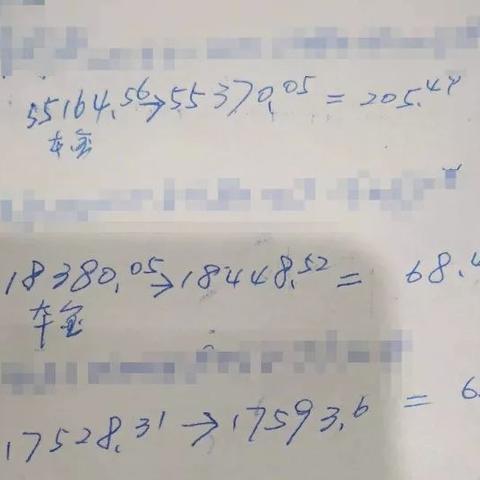 55164.56→55370.05=205.49
车室
18380.05→18448.52=68.4
车室
17528.31→17593.6=6